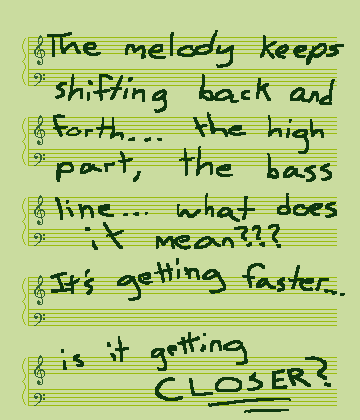 The melody keeps
shifting back and
forth... the high
part, the bass
line... what does
it mean???
It's getting faster...
is it getting
CLOSER?